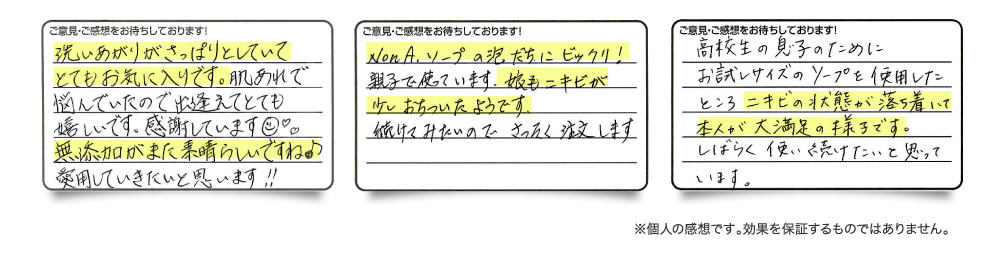 ご意見・ご感想をお待ちしております!
洗いあがりがさっぱりとしていて
とてもお気に入りです。肌あれで
悩んでいたので出逢えてとても
嬉しいです。感謝しています☺♡♡
無添加がまた素晴らしいですね♪
愛用していきたいと思います!!
ご意見・ご感想をお待ちしております!
Non A.ソープの泡だちにビックリ!
親子で使っています。娘もニキビが
少しおちついたようです。
続けてみたいのでさっそく注文します
ご意見・ご感想をお待ちしております!
高校生の息子のために
お試しサイズのソープを使用した
ところニキビの状態が落ち着いて
本人が大満足の様子です。
しばらく使い続けたいと思って
います。
※個人の感想です。効果を保証するものではありません。